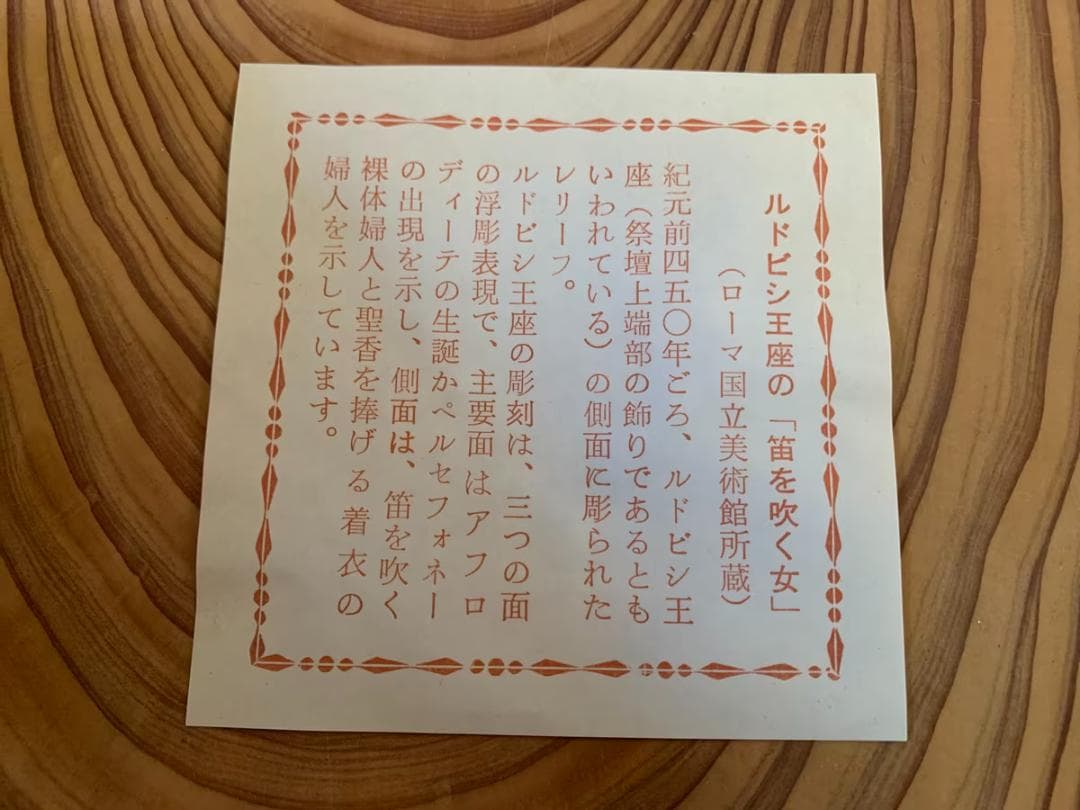 ルドビシ王座の「笛を吹く女」
（ローマ国立美術館所蔵）
紀元前四五〇年ごろ、ルドビシ王
座（祭壇上端部の飾りであるとも
いわれている）の側面に彫られた
レリーフ。
ルドビシ王座の彫刻は、三つの面
の浮彫表現で、主要面はアフロ
ディーテの生誕かペルセフォネー
の出現を示し、側面は、笛を吹く
裸体婦人と聖香を捧げる着衣の
婦人を示しています。